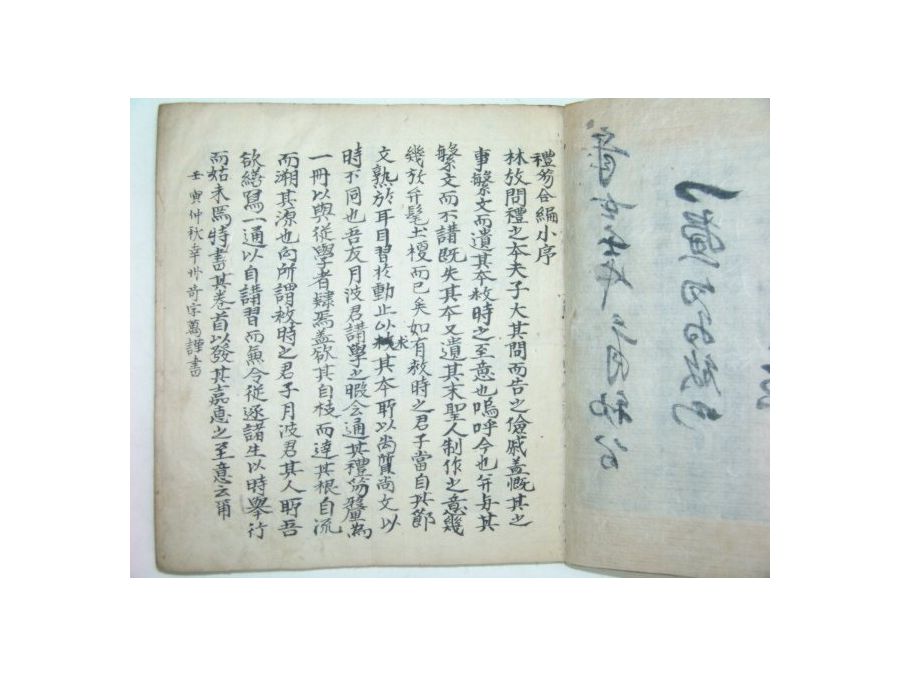 禮笏合編小序
林放問禮之本夫子大其問而告之儉戚盖慨其之
事繁文而遺其本救時之至意也嗚呼今也并与其
繁文而不講旣失其本又遺其末聖人制作之意幾
幾於弁髦土梗而已矣如有救時之君子當自其節
文熟於耳目習於動止以求其本所以尚質尚文以
時不同也吾友月波君講學之暇会通其禮笏釐為
一冊以與從學者肄焉盖欲其自枝而達其根自流
而溯其源也向所謂救時之君子月波君其人耶吾
欲繕寫一通以自講習而兼令從遊諸生以時擧行
而姑未焉特書其卷首以發其嘉惠之至意云爾
壬寅仲秋幸州奇宗萬謹書